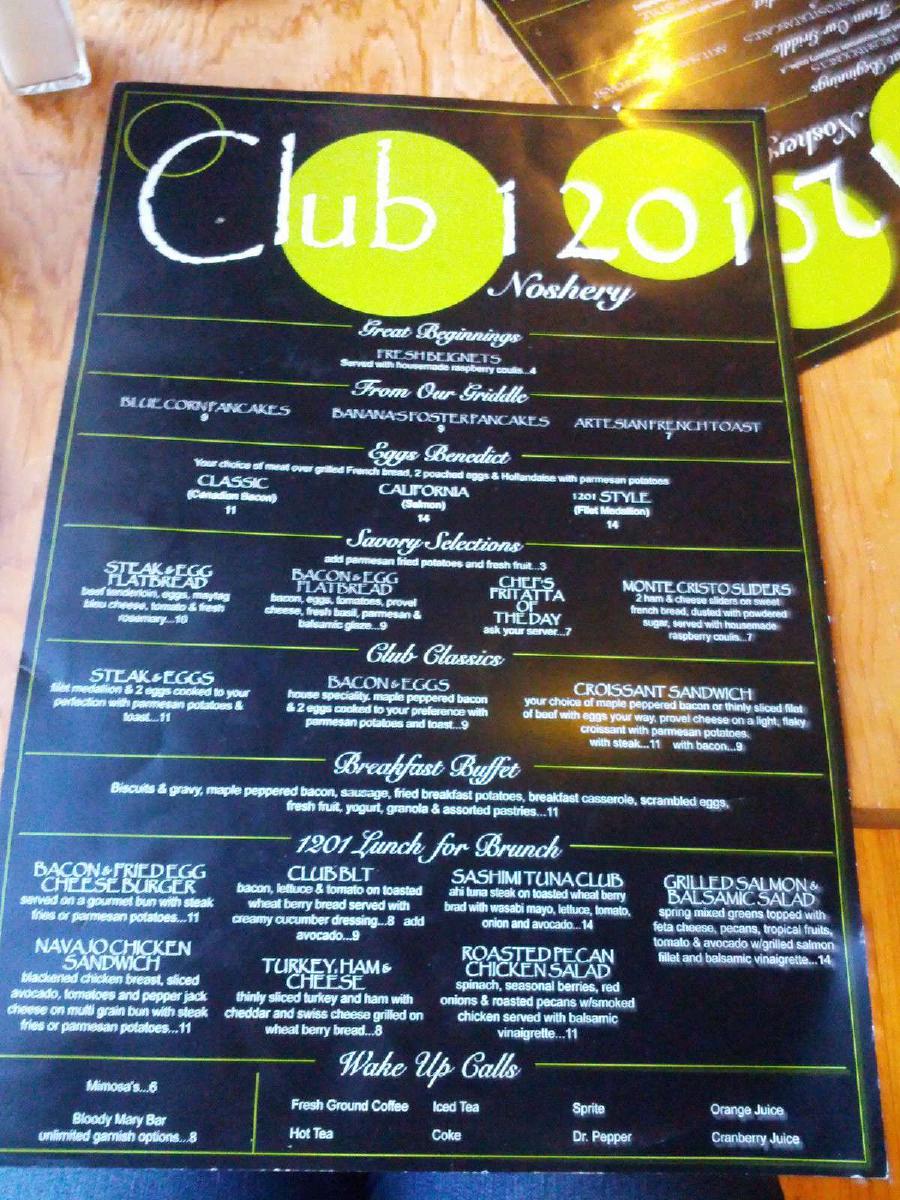 Club 1201
Noshery
Great Beginnings
FRESH BEIGNETS
Served with housemade raspberry coulis...4
From Our Griddle
BLUE CORN PANCAKES
9
BANANA'S FOSTER PANCAKES
9
ARTESIAN FRENCH TOAST
7
Eggs Benedict
Your choice of meat over grilled French bread, 2 poached eggs & Hollandaise with parmesan potatoes
CLASSIC
(Canadian Bacon)
11
CALIFORNIA
(Salmon)
14
1201 STYLE
(Filet Medallion)
14
Savory Selections
add parmesan fried potatoes and fresh fruit...3
STEAK & EGG
FLATBREAD
beef tenderloin, eggs, maytag
bleu cheese, tomato & fresh
rosemary...10
BACON & EGG
FLATBREAD
bacon, eggs, tomatoes, provel
cheese, fresh basil, parmesan &
balsamic glaze...9
CHEF'S
FRITATTA
OF
THE DAY
ask your server...7
MONTE CRISTO SLIDERS
2 ham & cheese sliders on sweet
french bread, dusted with powdered
sugar, served with housemade
raspberry coulis...7
Club Classics
STEAK & EGGS
filet medallion & 2 eggs cooked to your
perfection with parmesan potatoes &
toast...11
BACON & EGGS
house speciality, maple peppered bacon
& 2 eggs cooked to your preference with
parmesan potatoes and toast...9
CROISSANT SANDWICH
your choice of maple peppered bacon or thinly sliced filet
of beef with eggs your way, provel cheese on a light, flaky
croissant with parmesan potatoes.
with steak...11 with bacon...9
Breakfast Buffet
Biscuits & gravy, maple peppered bacon, sausage, fried breakfast potatoes, breakfast casserole, scrambled eggs,
fresh fruit, yogurt, granola & assorted pastries...11
1201 Lunch for Brunch
BACON & FRIED EGG
CHEESEBURGER
served on a gourmet bun with steak
fries or parmesan potatoes...11
CLUB BLT
bacon, lettuce & tomato on toasted
wheat berry bread served with
creamy cucumber dressing...8 add
avocado...9
SASHIMI TUNA CLUB
ahi tuna steak on toasted wheat berry
brad with wasabi mayo, lettuce, tomato,
onion and avocado...14
GRILLED SALMON &
BALSAMIC SALAD
spring mixed greens topped with
feta cheese, pecans, tropical fruits,
tomato & avocado w/grilled salmon
fillet and balsamic vinaigrette...14
NAVAJO CHICKEN
SANDWICH
blackened chicken breast, sliced
avocado, tomatoes and pepper jack
cheese on multi grain bun with steak
fries or parmesan potatoes...11
TURKEY, HAM &
CHEESE
thinly sliced turkey and ham with
cheddar and swiss cheese grilled on
wheat berry bread...8
ROASTED PECAN
CHICKEN SALAD
spinach, seasonal berries, red
onions & roasted pecans w/smoked
chicken served with balsamic
vinaigrette...11
Wake Up Calls
Mimosa's...6
Bloody Mary Bar
unlimited garnish options...8
Fresh Ground Coffee
Iced Tea
Sprite
Orange Juice
Hot Tea
Coke
Dr. Pepper
Cranberry Juice
Noshery
Beginnings
From Our Griddle